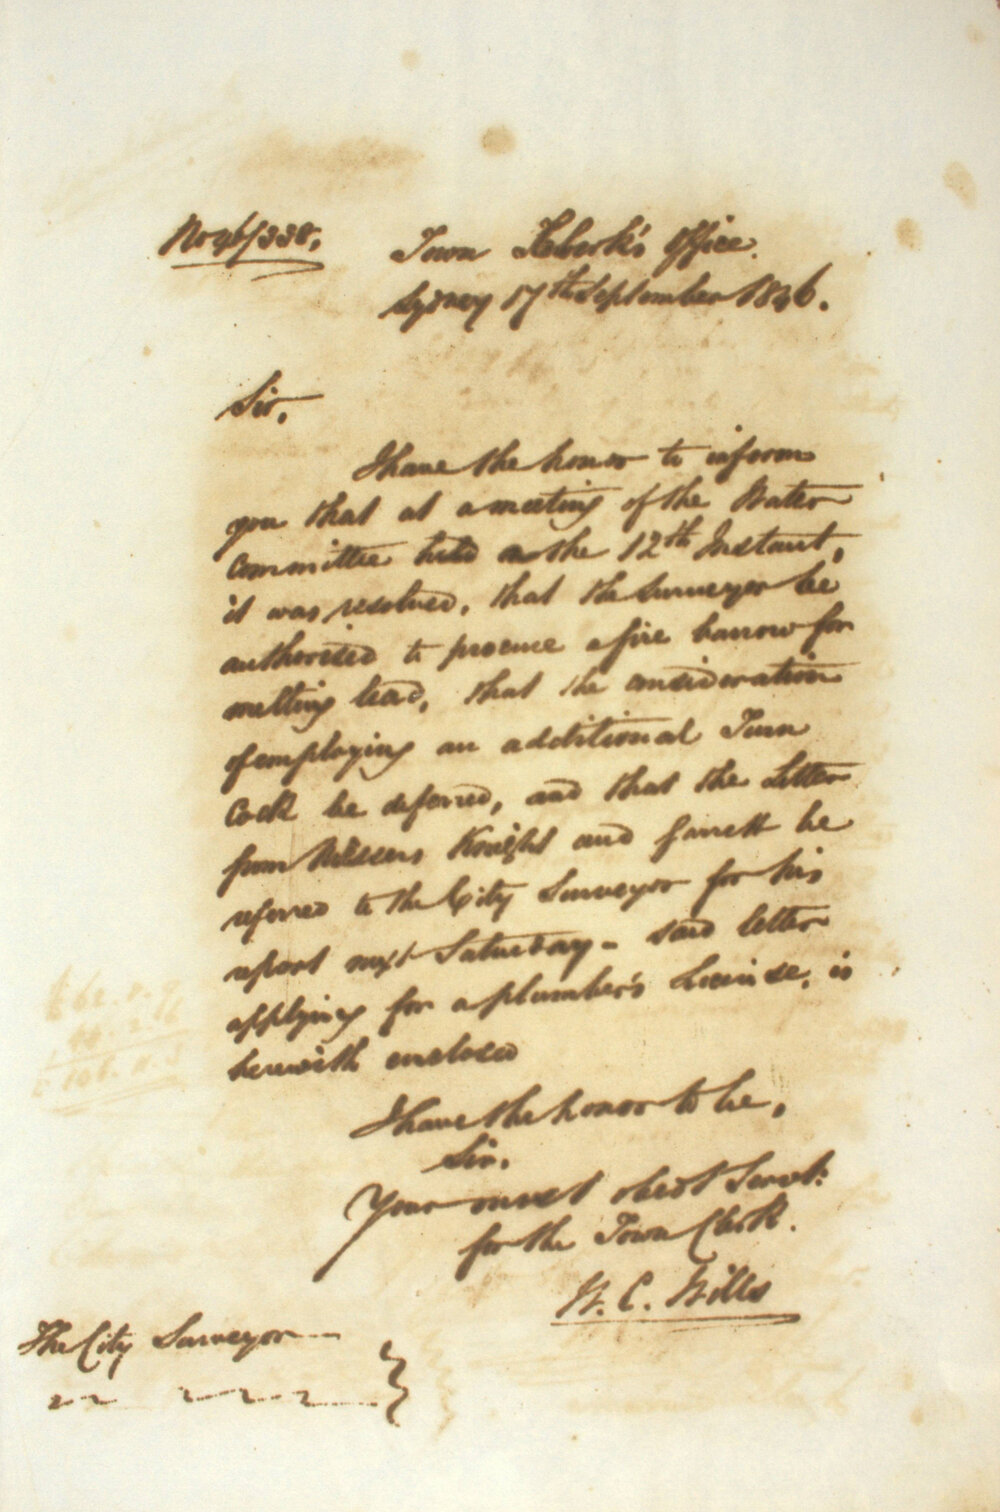 No 46/338.
Town Clerk's Office.
Sydney 17th September 1846.
Sir,
I have the honor to inform
you that at a meeting of the Water
Committee held on the 12th Instant,
it was resolved, that the Surveyor be
authorised to procure a fire barrow for
melting lead, that the consideration
of employing an additional Turn
Cock be deferred, and that the Letter
from Messers Knight and Garrett be
referred to the City Surveyor for his
report next Saturday - said letter
applying for a plumber's License, is
herewith enclosed
I have the honor to be,
Sir.
Your most obedt Servt:
for the Town Clerk.
W. C. Wills
The City Surveyor